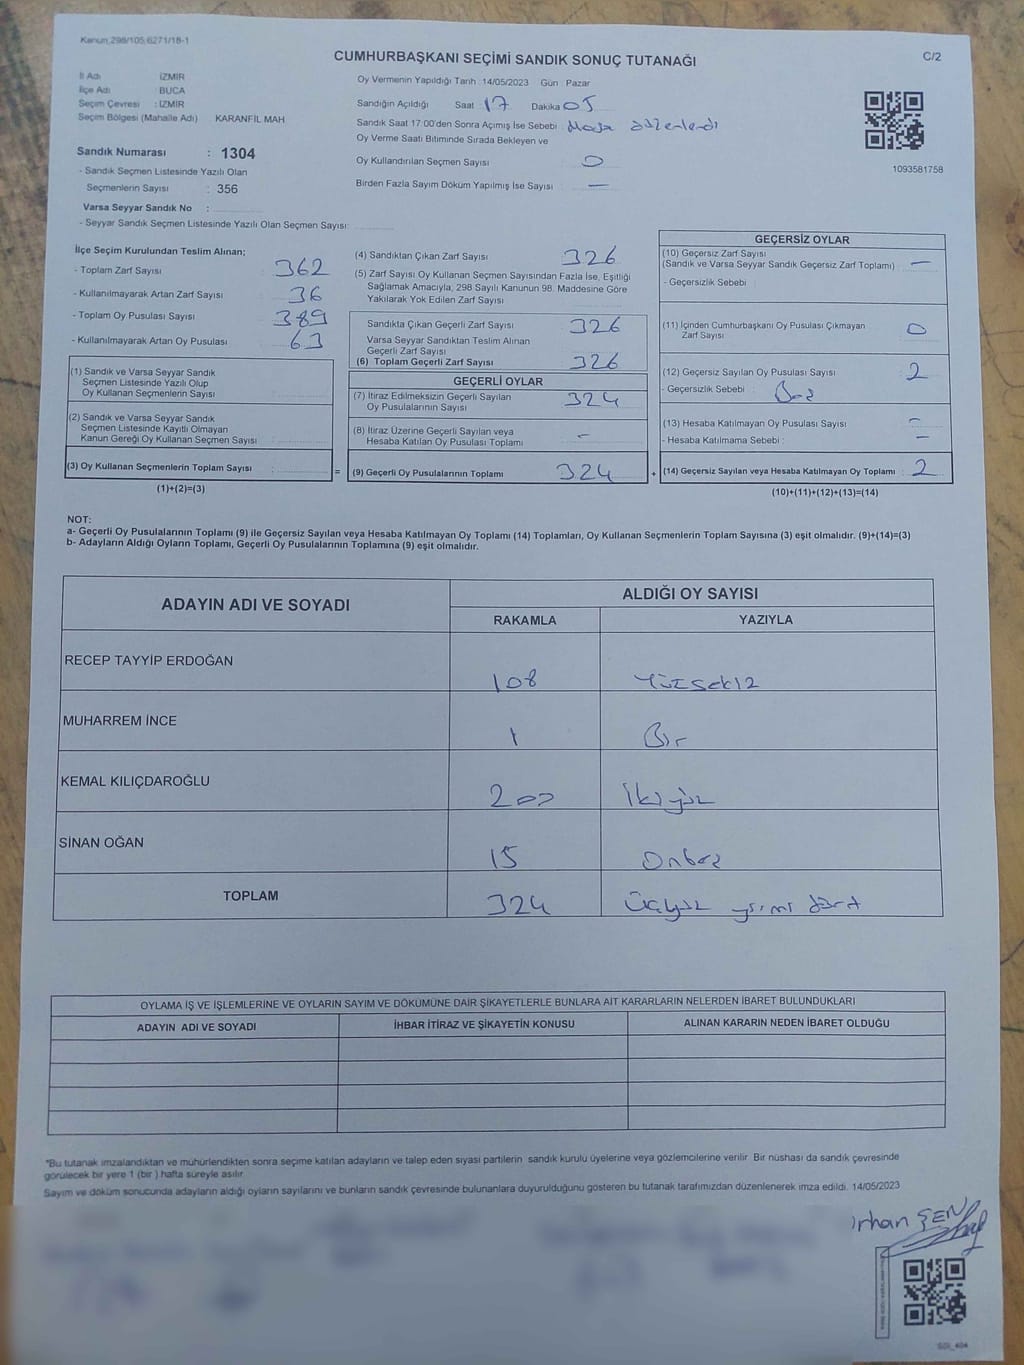 Kanun 298/105,6271/18-1
CUMHURBAŞKANI SEÇİMİ SANDIK SONUÇ TUTANAĞI
C/2
İl Adı : İZMİR
İlçe Adı : BUCA
Seçim Çevresi : İZMİR
Seçim Bölgesi (Mahalle Adı) KARANFİL MAH
Sandık Numarası : 1304
- Sandık Seçmen Listesinde Yazılı Olan
Seçmenlerin Sayısı : 356
Varsa Seyyar Sandık No :
- Seyyar Sandık Seçmen Listesinde Yazılı Olan Seçmen Sayısı:
Oy Vermenin Yapıldığı Tarih : 14/05/2023 Gün : Pazar
Sandığın Açıldığı Saat : 17 Dakika : 05
Sandık Saat 17:00'den Sonra Açımış İse Sebebi : Masa düzenlendi
Oy Verme Saati Bitiminde Sırada Bekleyen ve
Oy Kullandırılan Seçmen Sayısı : 0
Birden Fazla Sayım Döküm Yapılmış İse Sayısı : —
1093581758
İlçe Seçim Kurulundan Teslim Alınan;
- Toplam Zarf Sayısı : 362
- Kullanılmayarak Artan Zarf Sayısı : 36
- Toplam Oy Pusulası Sayısı : 389
- Kullanılmayarak Artan Oy Pusulası : 63
(1) Sandık ve Varsa Seyyar Sandık
Seçmen Listesinde Yazılı Olup
Oy Kullanan Seçmenlerin Sayısı :
(2) Sandık ve Varsa Seyyar Sandık
Seçmen Listesinde Kayıtlı Olmayan
Kanun Gereği Oy Kullanan Seçmen Sayısı :
(3) Oy Kullanan Seçmenlerin Toplam Sayısı :
(1)+(2)=(3)
(4) Sandıktan Çıkan Zarf Sayısı : 326
(5) Zarf Sayısı Oy Kullanan Seçmen Sayısından Fazla İse, Eşitliği
Sağlamak Amacıyla, 298 Sayılı Kanunun 98. Maddesine Göre
Yakılarak Yok Edilen Zarf Sayısı :
Sandıkta Çıkan Geçerli Zarf Sayısı : 326
Varsa Seyyar Sandıktan Teslim Alınan
Geçerli Zarf Sayısı :
(6) Toplam Geçerli Zarf Sayısı : 326
GEÇERLİ OYLAR
(7) İtiraz Edilmeksizin Geçerli Sayılan
Oy Pusulalarının Sayısı : 324
(8) İtiraz Üzerine Geçerli Sayılan veya
Hesaba Katılan Oy Pusulası Toplamı : -
= (9) Geçerli Oy Pusulalarının Toplamı : 324 +
GEÇERSİZ OYLAR
(10) Geçersiz Zarf Sayısı
(Sandık ve Varsa Seyyar Sandık Geçersiz Zarf Toplamı) : —
- Geçersizlik Sebebi :
(11) İçinden Cumhurbaşkanı Oy Pusulası Çıkmayan
Zarf Sayısı : 0
(12) Geçersiz Sayılan Oy Pusulası Sayısı : 2
- Geçersizlik Sebebi : Boş
(13) Hesaba Katılmayan Oy Pusulası Sayısı : —
- Hesaba Katılmama Sebebi : —
(14) Geçersiz Sayılan veya Hesaba Katılmayan Oy Toplamı : 2
(10)+(11)+(12)+(13)=(14)
NOT:
a- Geçerli Oy Pusulalarının Toplamı (9) ile Geçersiz Sayılan veya Hesaba Katılmayan Oy Toplamı (14) Toplamları, Oy Kullanan Seçmenlerin Toplam Sayısına (3) eşit olmalıdır. (9)+(14)=(3)
b- Adayların Aldığı Oyların Toplamı, Geçerli Oy Pusulalarının Toplamına (9) eşit olmalıdır.
ADAYIN ADI VE SOYADI
ALDIĞI OY SAYISI
RAKAMLA YAZIYLA
RECEP TAYYİP ERDOĞAN 108 Yüzsekiz
MUHARREM İNCE 1 Bir
KEMAL KILIÇDAROĞLU 200 İkiyüz
SİNAN OĞAN 15 Onbeş
TOPLAM 324 Üçyüz yirmi dört
OYLAMA İŞ VE İŞLEMLERİNE VE OYLARIN SAYIM VE DÖKÜMÜNE DAİR ŞİKAYETLERLE BUNLARA AİT KARARLARIN NELERDEN İBARET BULUNDUKLARI
ADAYIN ADI VE SOYADI İHBAR İTİRAZ VE ŞİKAYETİN KONUSU ALINAN KARARIN NEDEN İBARET OLDUĞU
*Bu tutanak imzalandıktan ve mühürlendikten sonra seçime katılan adayların ve talep eden siyasi partilerin sandık kurulu üyelerine veya gözlemcilerine verilir. Bir nüshası da sandık çevresinde
görülecek bir yere 1 (bir ) hafta süreyle asılır.
Sayım ve döküm sonucunda adayların aldığı oyların sayılarını ve bunların sandık çevresinde bulunanlara duyurulduğunu gösteren bu tutanak tarafımızdan düzenlenerek imza edildi. 14/05/2023
irhan ŞEN